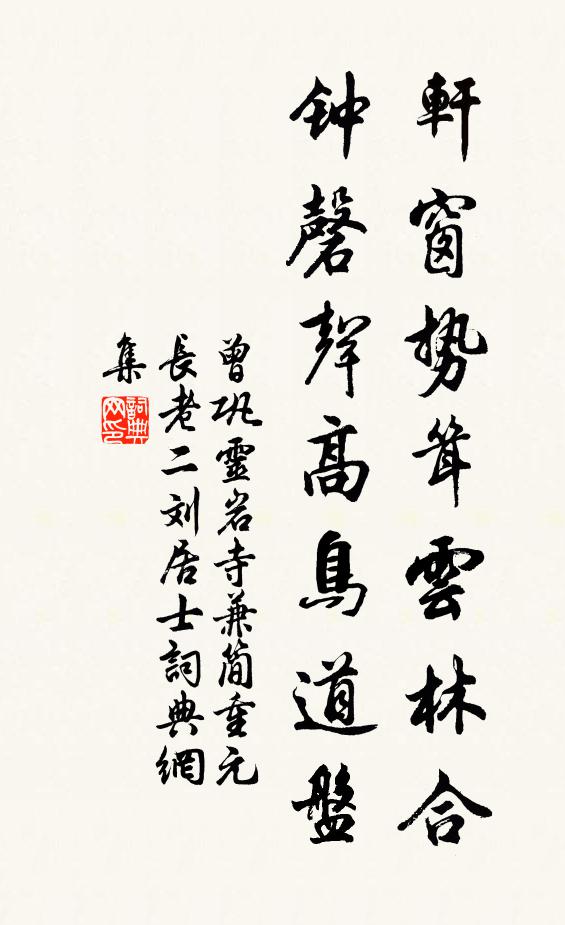 軒窗势耸雲林合
钟磬聲高鳥道盤
曾巩靈岩寺兼简重元
長老二刘居士詞典網
集
詞典
网印